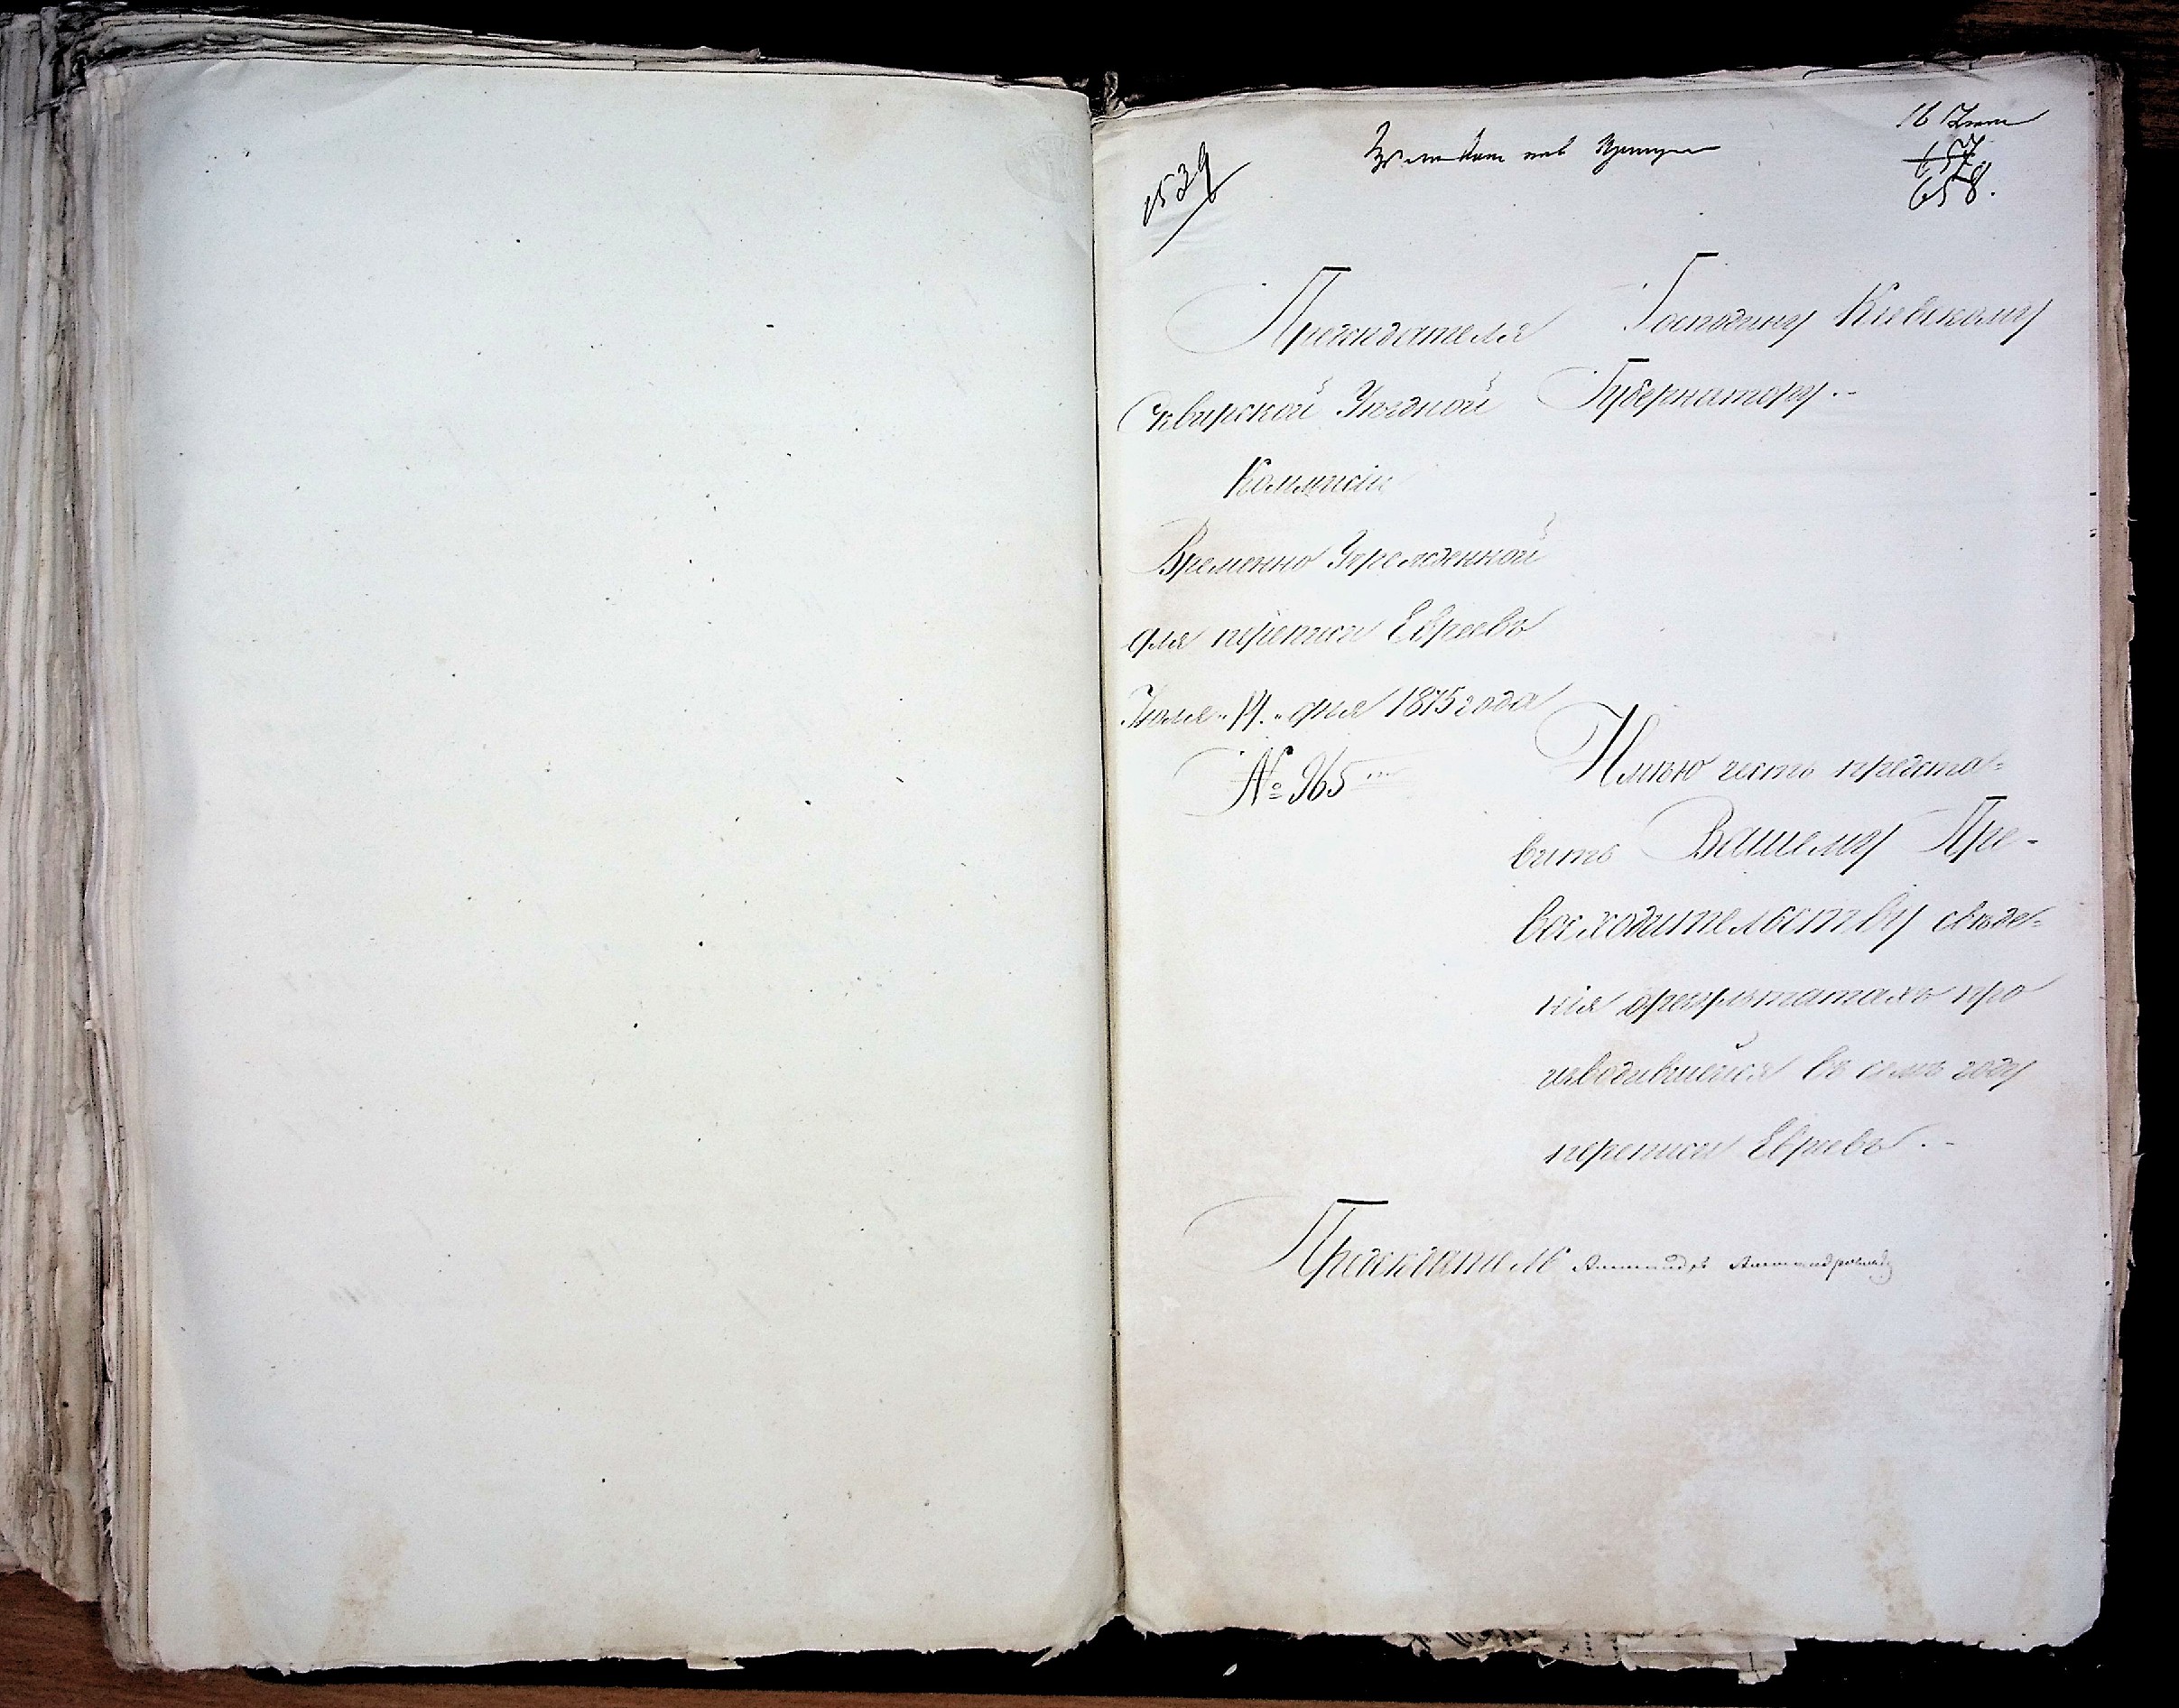 16 Іюля
657
658.
1539
Предсѣдателя
Сквирской Уѣздной
Коммисіи
Временно Учрежденной
для переписи Евреевъ
Іюля "14" дня 1875 года
№ 965
Господину Кіевскому
Губернатору.-
Имѣю честь предста=
вить Вашему Пре-
восходительству свѣде=
нія о результатахъ про
изводившейся въ семъ году
переписи Евреевъ.-
Предсѣдатель